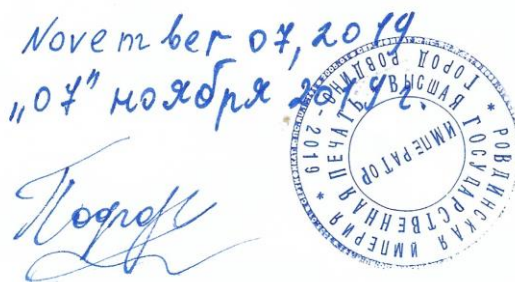 November 07, 2019
„07" ноября 2019г.
РОВДИНСКАЯ ИМПЕРИЯ * 2019 - ГОРОД РОВДИНО *
ВЫСШАЯ ГОСУДАРСТВЕННАЯ ПЕЧАТЬ
ИМПЕРАТОР